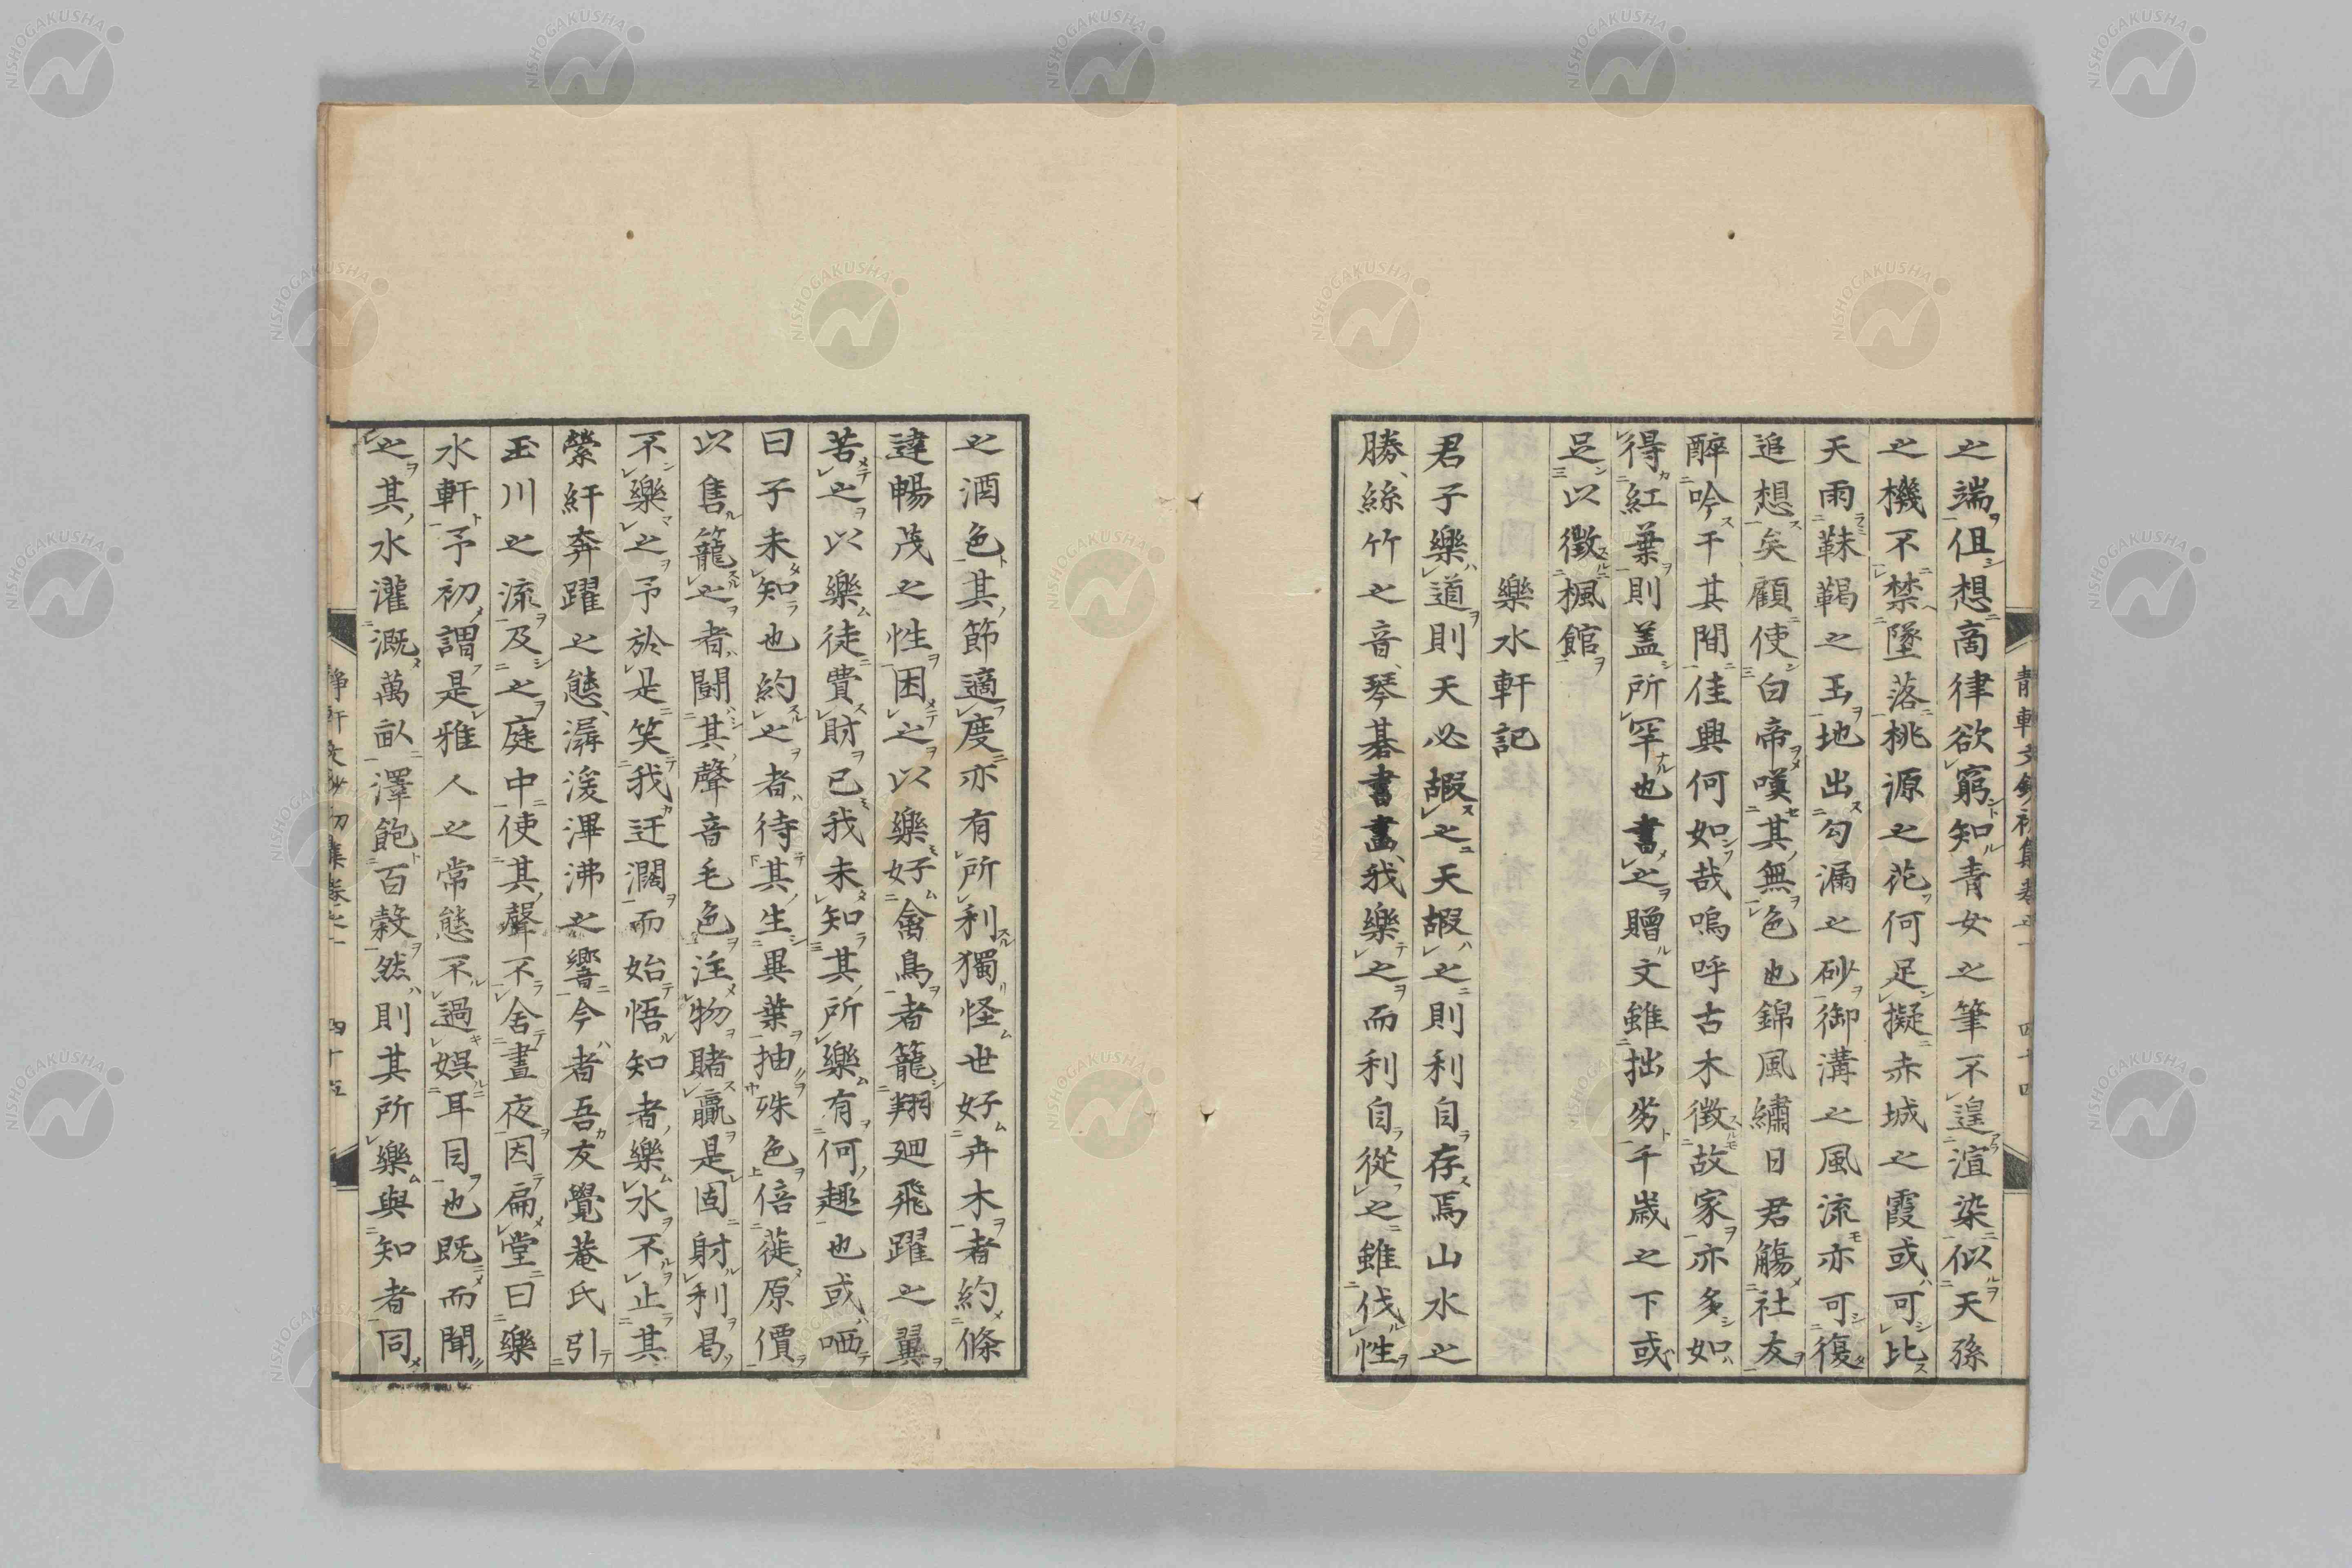 之端但想商律欲窮知青女之筆不遑渲染似天孫
之機不禁墜落桃源之花何足擬赤城之霞或可比
天雨靺鞨之玉地出勾漏之砂御溝之風流亦可復
追想矣顧使白帝嘆其無色也錦風繡日君觴社友
醉吟于其間佳興何如哉嗚呼古木徴故家亦多如
得紅葉則盖所罕也書之贈文雖拙劣千歳之下或
足以徴楓館
樂水軒記
君子樂道則天必嘏之天嘏之則利自存焉山水之
勝絲竹之音琴碁書畫我樂之而利自從之雖伐性
之酒色其節適度亦有所利獨怪世好卉木者約條
違暢茂之性困之以樂好禽鳥者籠翔廻飛躍之翼
苦之以樂徒費財已我未知其所樂有何趣也或哂
曰子未知也約之者待其生異葉抽殊色倍蓰原價
以售籠之者闘其聲音毛色注物賭贏是固射利曷
不樂之予於是笑我迂濶而始悟知者樂水不止其
縈紆奔躍之態潺湲渾沸之響今者吾友覺菴氏引
玉川之流及之庭中使其聲不舍晝夜因扁堂曰樂
水軒予初謂是雅人之常態不過娯耳目也既而聞
之其水灌漑萬畝澤飽百穀然則其所樂與知者同
靜軒文鈔初集卷之一 四十四
靜軒文鈔初集卷之一 四十五
NISHOGAKUSHA